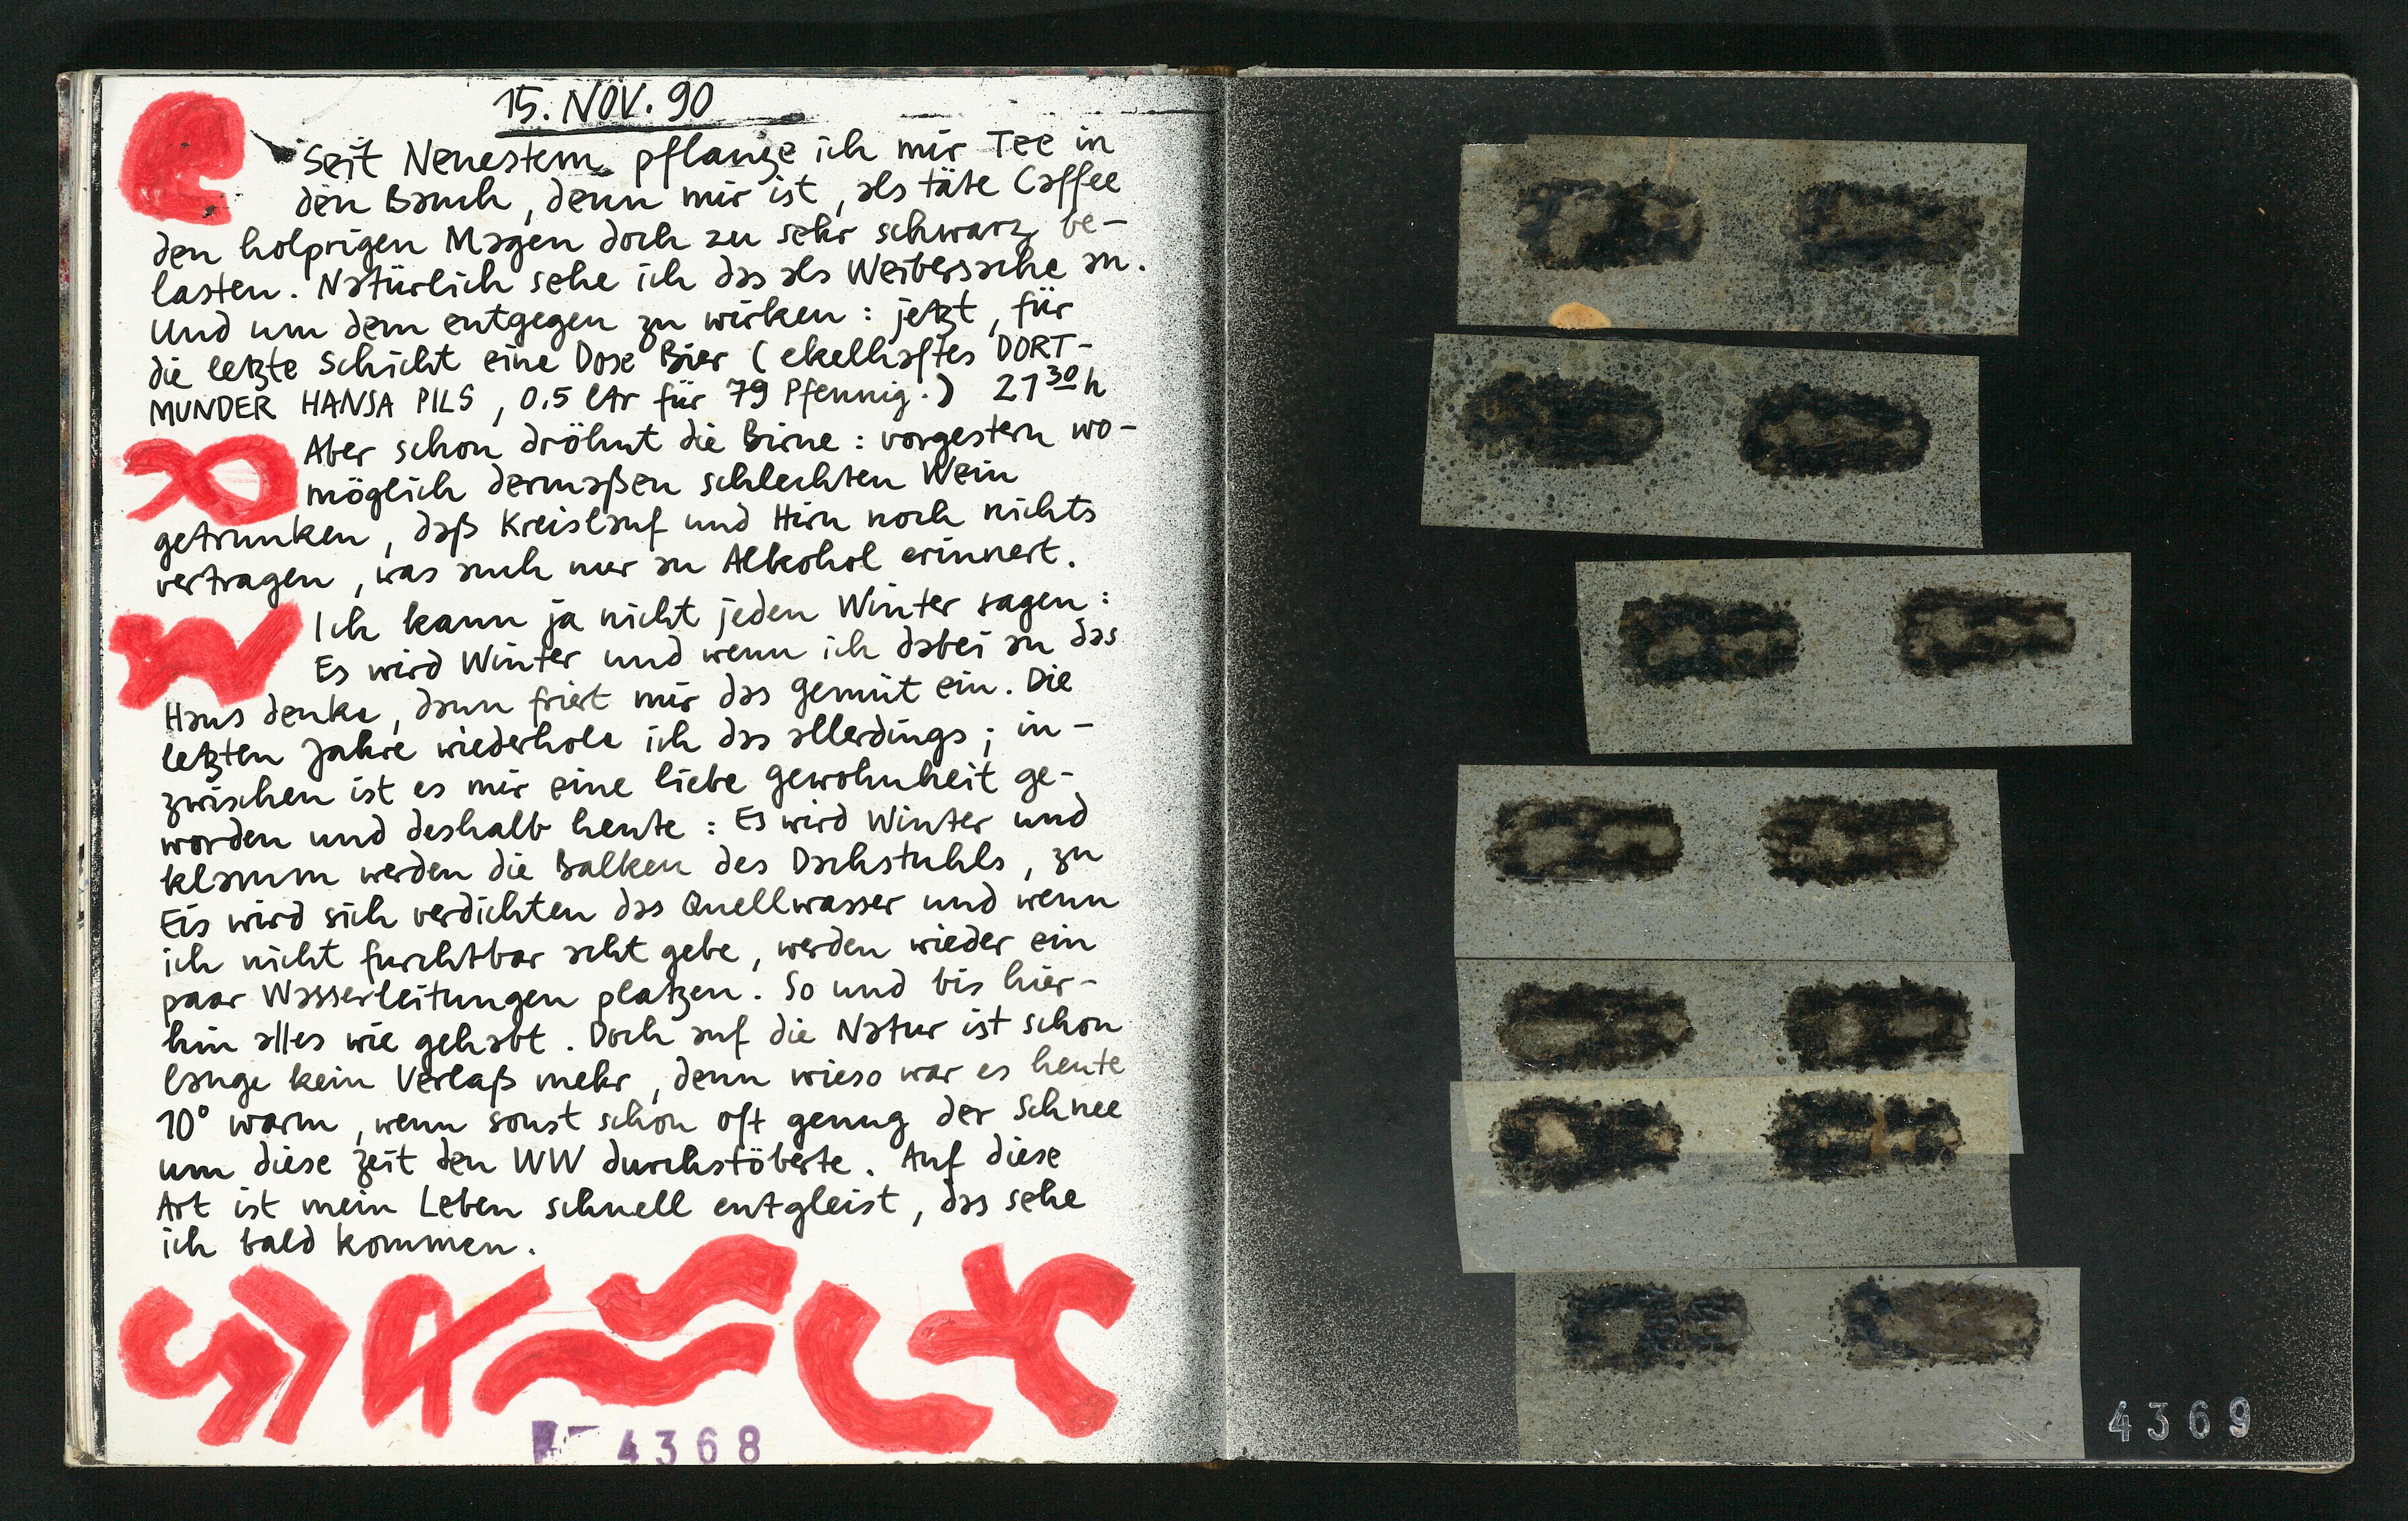 15. NOV. 90
Seit Neuestem pflanze ich mir Tee in
den Bauch, denn mir ist, als täte Caffee
den holprigen Magen doch zu sehr schwarz be-
lasten. Natürlich sehe ich das als Weibersache an.
Und um dem entgegen zu wirken: jetzt, für
die letzte Schicht eine Dose Bier (ekelhaftes DORT-
MUNDER HANSA PILS, 0.5 ltr für 79 Pfennig.) 21 30 h
Aber schon dröhnt die Birne: vorgestern wo-
möglich dermaßen schlechten Wein
getrunken, daß Kreislauf und Hirn noch nichts
vertragen, was auch nur an Alkohol erinnert.
Ich kann ja nicht jeden Winter sagen:
Es wird Winter und wenn ich dabei an das
Haus denke, dann friert mir das Gemüt ein. Die
letzten Jahre wiederhole ich das allerdings; in-
zwischen ist es mir eine liebe Gewohnheit ge-
worden und deshalb heute: Es wird Winter und
klamm werden die Balken des Dachstuhls, zu
Eis wird sich verdichten das Quellwasser und wenn
ich nicht furchtbar acht gebe, werden wieder ein
paar Wasserleitungen platzen. So und bis hier-
hin alles wie gehabt. Doch auf die Natur ist schon
lange kein Verlaß mehr, denn wieso war es heute
10° warm, wenn sonst schon oft genug der Schnee
um diese Zeit den WW durchstöberte. Auf diese
Art ist mein Leben schnell entgleist, das sehe
ich bald kommen.
4368
4369